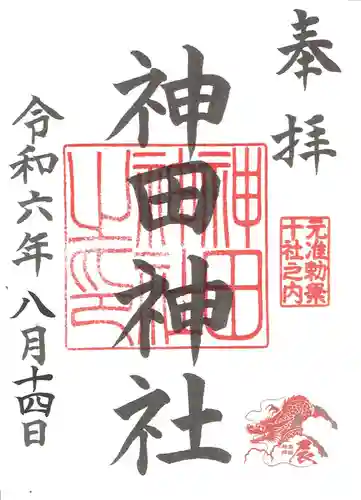 奉拝
元准勅祭
十社之内
神田神社
神田
神社
之印
令和六年八月十四日
辰